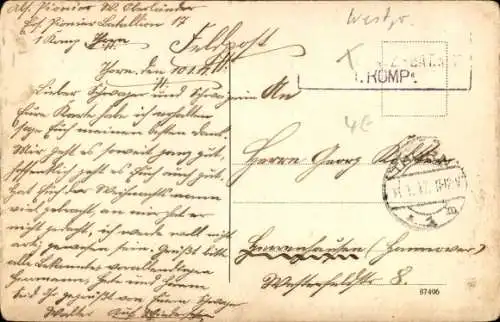 Abs. Pionier W. Oberländer
Ers. Pionier Batallion 17
1 Komp Thorn
Feldpost
Thorn. den 10.1.17.
Lieber Schwager und Schwägerin
Eure Karte habe ich erhalten
sage Euch meinen besten Dank.
Mir geht es soweit ganz gut,
hoffentlich geht es Euch auch gut.
Hat Euch der Weihnachtsmann
viel gebracht, an mir hat er
nicht gedacht, ich werde wohl nicht
artig gewesen sein. Grüßt bitte
alle Bekannte
Hermann,
Seid gegrüßt von Eurem Schwager
Walter Auf Wiedersehn
Westpr.
KOMP.
4€
An
Herrn Georg
17. 11-12 V
Herrenhausen (Hannover)
8.
87496